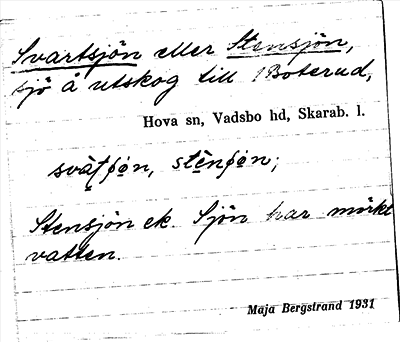 Svartsjön eller Stensjön,
sjö å utskog till Boterud,
Hova sn, Vadsbo hd, Skarab. l.
Stensjön ek. Sjön har mörkt
vatten.
Maja Bergstrand 1931